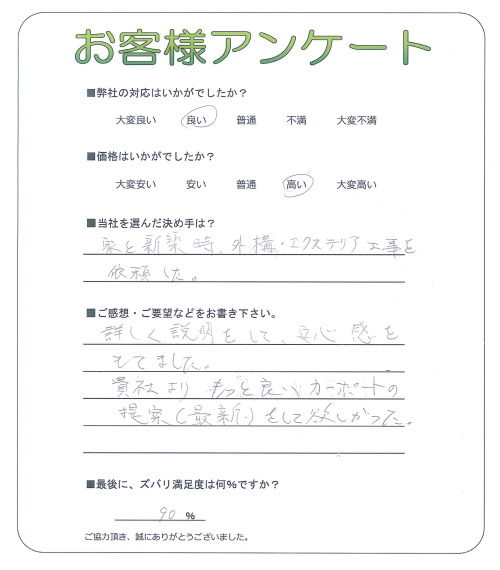 お客様アンケート
■弊社の対応はいかがでしたか？
大変良い 良い 普通 不満 大変不満
■価格はいかがでしたか？
大変安い 安い 普通 高い 大変高い
■当社を選んだ決め手は？
家を新築時、外構・エクステリア工事を
依頼した。
■ご感想・ご要望などをお書き下さい。
詳しく説明をして、安心感を
もてました。
貴社より もっと良いカーポートの
提案(最新)をして欲しかった。
■最後に、ズバリ満足度は何%ですか？
90 %
ご協力頂き、誠にありがとうございました。